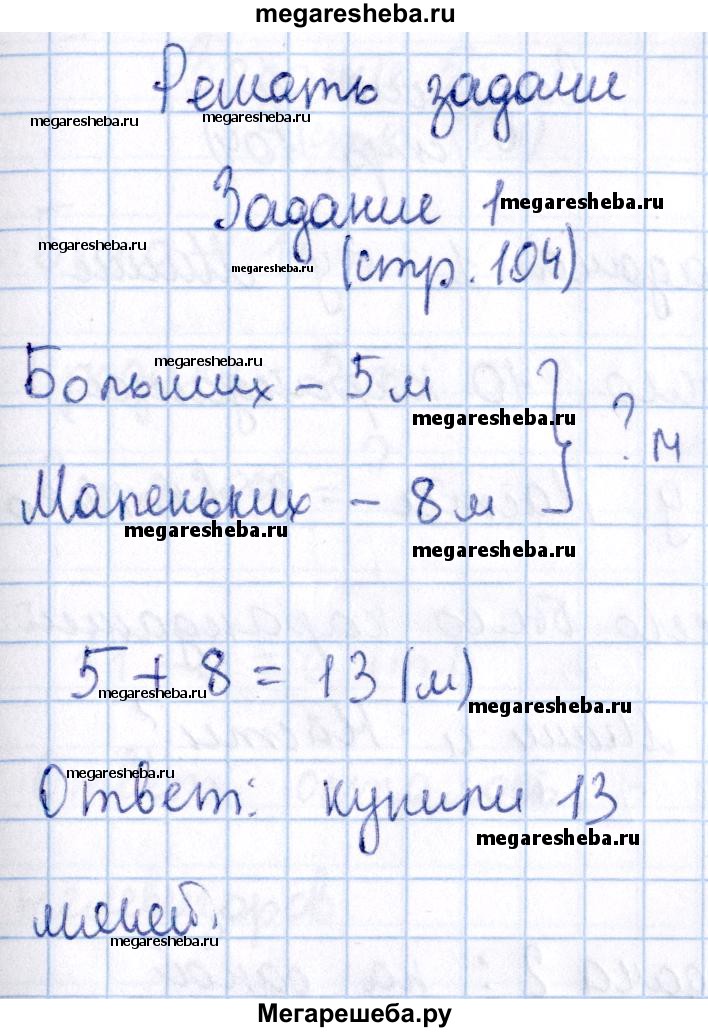 megaresheba.ru
Решать задачи
megaresheba.ru megaresheba.ru
Задание 1 megaresheba.ru
megaresheba.ru megaresheba.ru
(стр. 104)
megaresheba.ru
Больших – 5 м
megaresheba.ru
? м
Маленьких – 8 м
megaresheba.ru megaresheba.ru
5 + 8 = 13 (м)
megaresheba.ru megaresheba.ru
megaresheba.ru
Ответ: купили 13
megaresheba.ru
мячей.
megaresheba.ru
Мегарешеба.ру